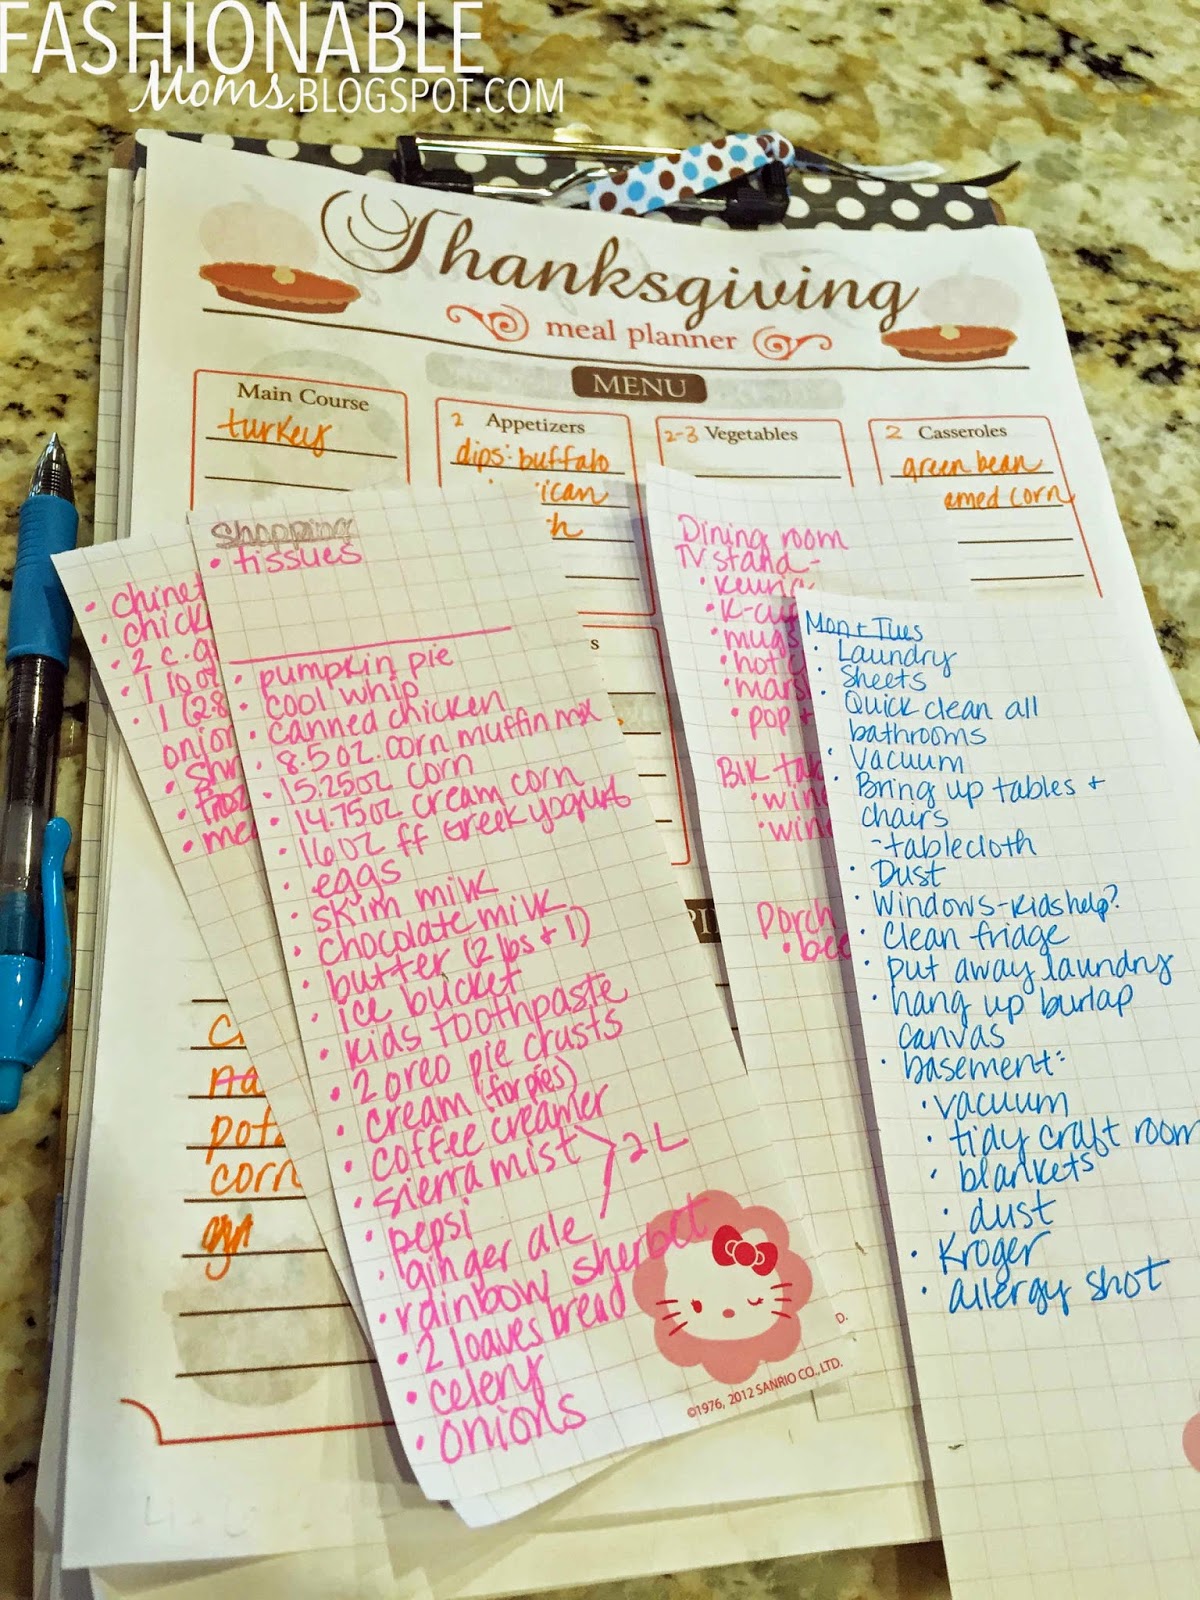 FASHIONABLE
Moms.BLOGSPOT.COM
Thanksgiving
meal planner
MENU
Main Course
turkey
2 Appetizers
dips: buffalo
2-3 Vegetables
2 Casseroles
green bean
corn
pot
corn
shopping
• tissues
• pumpkin pie
• cool whip
• canned chicken
• 8.5oz. corn muffin mix
• 15.25oz corn
• 14.75oz cream corn
• 16oz ff Greek yogurt
• eggs
• skim milk
• chocolate milk
• butter (2 lbs + 1)
• ice bucket
• kids toothpaste
• 2 oreo pie crusts
• cream (for pies)
• coffee creamer
• sierra mist
• pepsi
• ginger ale
2 L
• rainbow sherbet
• 2 loaves bread
• celery
• onions
©1976, 2012 SANRIO CO., LTD.
Dining room
TV stand-
• mugs
• hot
• pop +
Porch
Mon + Tues
• Laundry
• Sheets
• Quick clean all
bathrooms
• Vacuum
• Bring up tables +
chairs
- tablecloth
• Dust
• Windows - kids help?
• Clean fridge
• put away laundry
• hang up burlap
canvas
• basement:
• vacuum
• tidy craft room
• blankets
• dust
• Kroger
• allergy shot